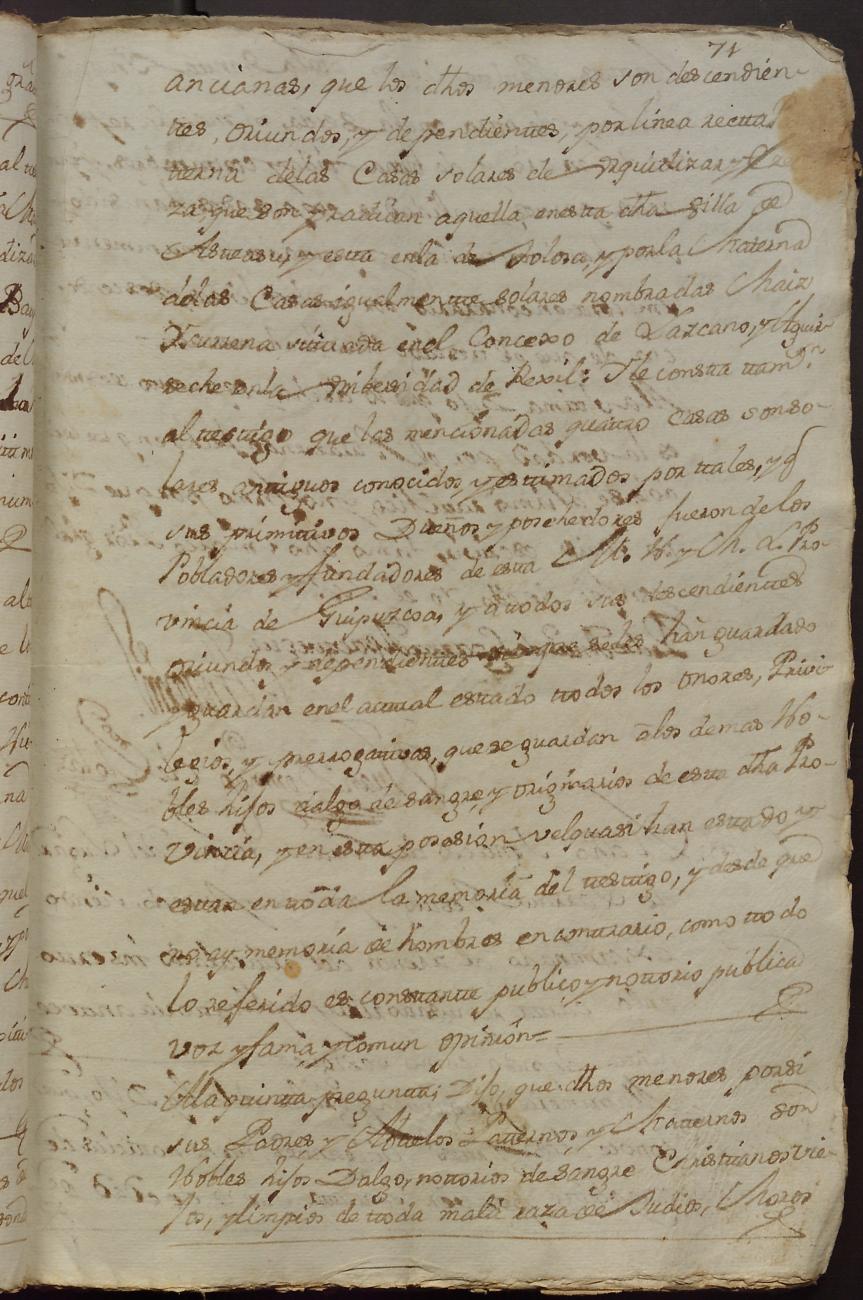 71
ancianas, que los dhos menores son descendien-
tes, oriundos, y dependientes, por linea recta P
terna delas Casas solares de Eguilizar y
za, que son y radican aquella enesta dha Villa de
Asteasu, y esta enla de Tolosa, y porla Materna
delas Casas igualmente solares nombradas Maiz
Ycurrena situada enel Concexo de Lazcano, y Aguir-
reche enla Universidad de Rexil: Yle consta tamvn
al testigo que las mencionadas quatro Casas son so-
lares antiguos conocidos y estimados por tales, y q
sus primitivos Duenos y posehedores fueron delos
Pobladores y fundadores de esta M. N. y M. L. Pro-
vincia de Guipuzcoa, y atodos sus descendientes
oriundos y dependientes siempre seles han guardado
y guardan enel actual estado ttodos los onores, Privi-
legios, y prerrogativas, que se guardan alos demas No-
bles hijos dalgo de sangre, y originarios de esta dha Pro-
vincia, y en esta posesion velquasi han estado y
estan en ttoda la memoria del testigo, y desde que
no ay memoria de hombres en contrario, como ttodo
lo referido es constante publico y nottorio publica
voz y fama y comun opinion=
Ala quinta pregunta: Dijo, que dhos menores porsi
sus Padres y Abuelos Paternos, y Maternos son
Nobles hijos Dalgo, nottorios de sangre Cristianos vie-
jos, y limpios de ttoda mala raza de Judios, Moros